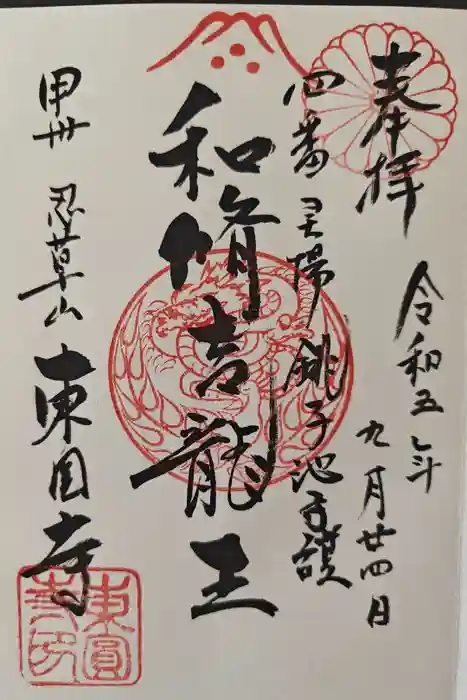 奉拝
令和五年
九月廿四日
四番 灵帯 銚子池守護
和脩吉龍王
甲州 忍草山 東円寺
東圓
寺印